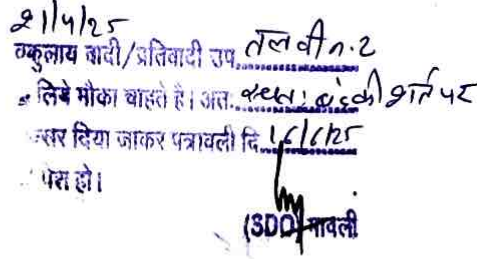 21/4/25
वकुलाय वादी/प्रतिवादी उप. तलवी न. 2
लिये मौका चाहते है। अतः की शर्त पर
सर दिया जाकर पत्रावली दि. 16/6/25
पेश हो।
(SDO) मावली